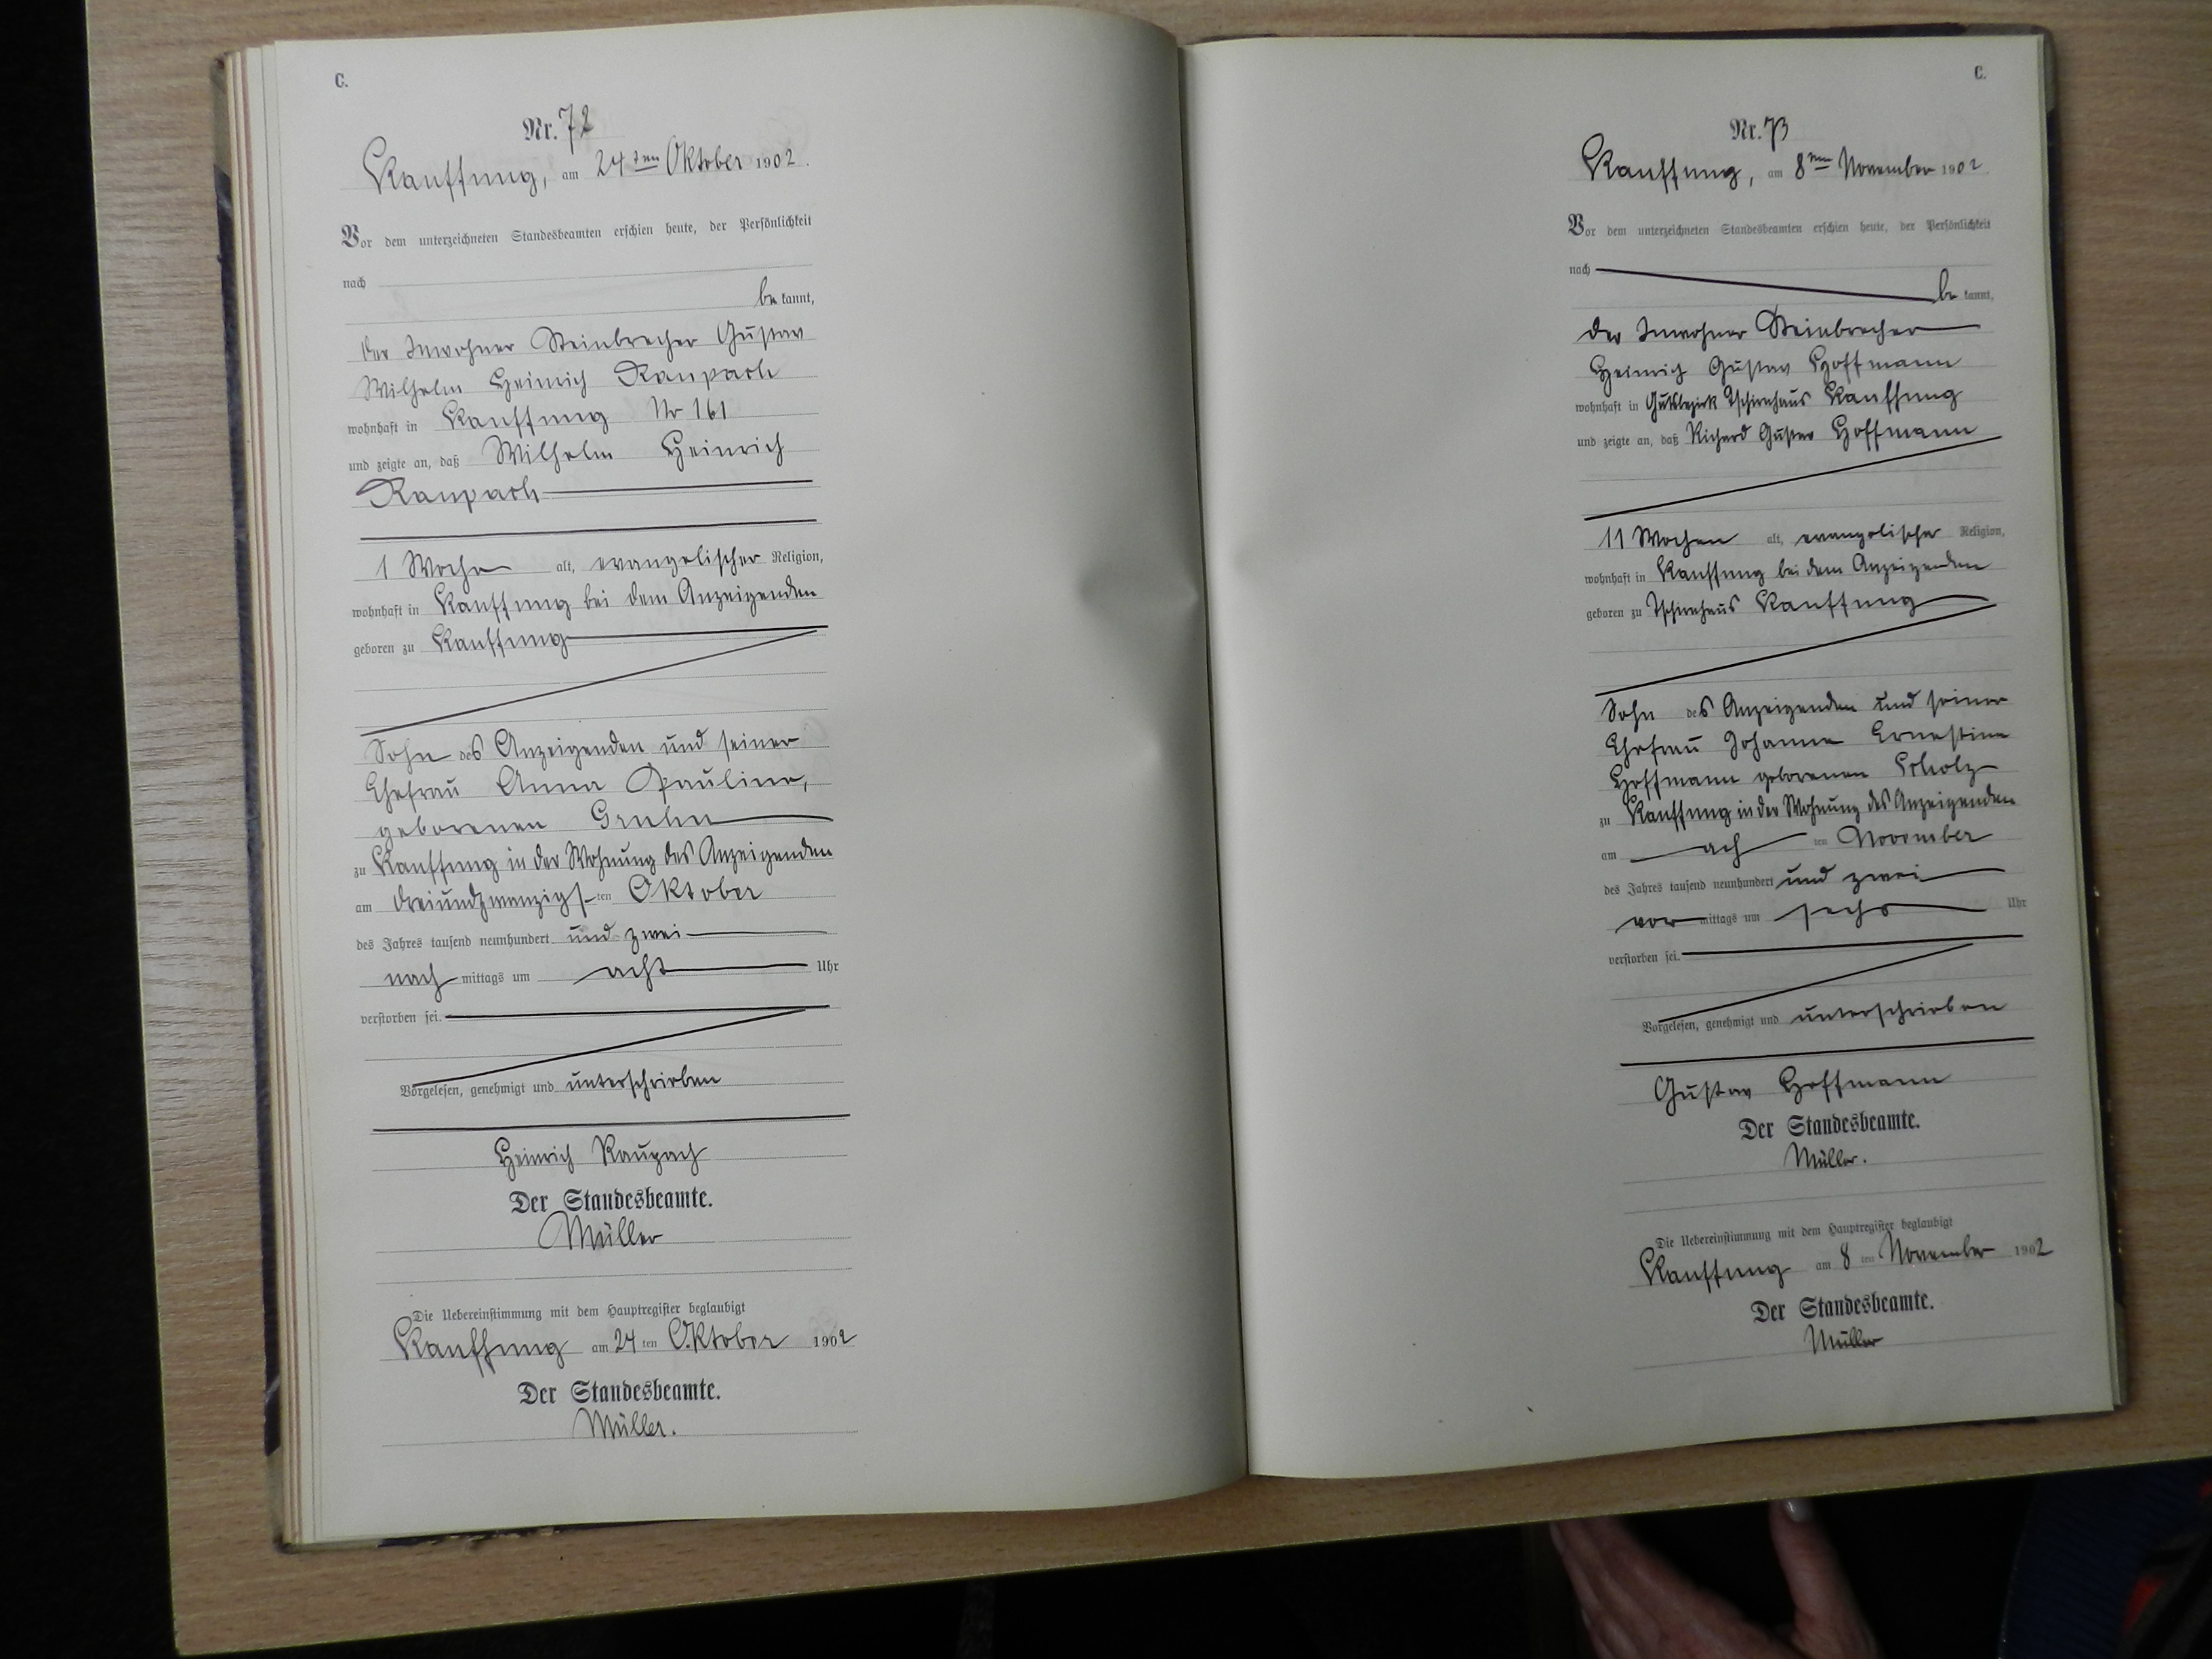 C.
Nr. 72
Kauffung, am 24ten Oktober 1902.
Vor dem unterzeichneten Standesbeamten erschien heute, der Persönlichkeit
nach
be kannt,
der Inwohner Steinbrecher Gustav
Wilhelm Heinrich Raupach
wohnhaft in Kauffung Nr 161
und zeigte an, daß Wilhelm Heinrich
Raupach
1 Woche alt, evangelischer Religion,
wohnhaft in Kauffung bei dem Anzeigenden
geboren zu Kauffung
Sohn des Anzeigenden und seiner
Ehefrau Anna Pauline,
geborenen Gruhn
zu Kauffung in der Wohnung des Anzeigenden
am dreiundzwanzigsten Oktober
des Jahres tausend neunhundert und zwei
nach mittags um acht Uhr
verstorben sei.
Vorgelesen, genehmigt und unterschrieben
Heinrich Raupach
Der Standesbeamte.
Müller
Die Uebereinstimmung mit dem Hauptregister beglaubigt
Kauffung am 24 ten Oktober 1902
Der Standesbeamte.
Müller.
C.
Nr. 73
Kauffung, am 8ten November 1902.
Vor dem unterzeichneten Standesbeamten erschien heute, der Persönlichkeit
nach
be kannt,
der Inwohner Steinbrecher
Heinrich Gustav Hoffmann
wohnhaft in Gutsbezirk Tschirnhaus Kauffung
und zeigte an, daß Richard Gustav Hoffmann
11 Wochen alt, evangelischer Religion,
wohnhaft in Kauffung bei dem Anzeigenden
geboren zu Tschirnhaus Kauffung
Sohn des Anzeigenden und seiner
Ehefrau Johanne Ernestine
Hoffmann geborenen Scholz
zu Kauffung in der Wohnung des Anzeigenden
am ach ten November
des Jahres tausend neunhundert und zwei
vor mittags um sechs Uhr
verstorben sei.
Vorgelesen, genehmigt und unterschrieben
Gustav Hoffmann
Der Standesbeamte.
Müller.
Die Uebereinstimmung mit dem Hauptregister beglaubigt
Kauffung am 8 ten November 1902
Der Standesbeamte.
Müller